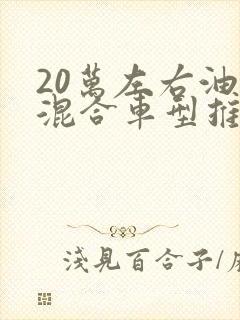 20萬左右油
混合車型推
淺見百合子/